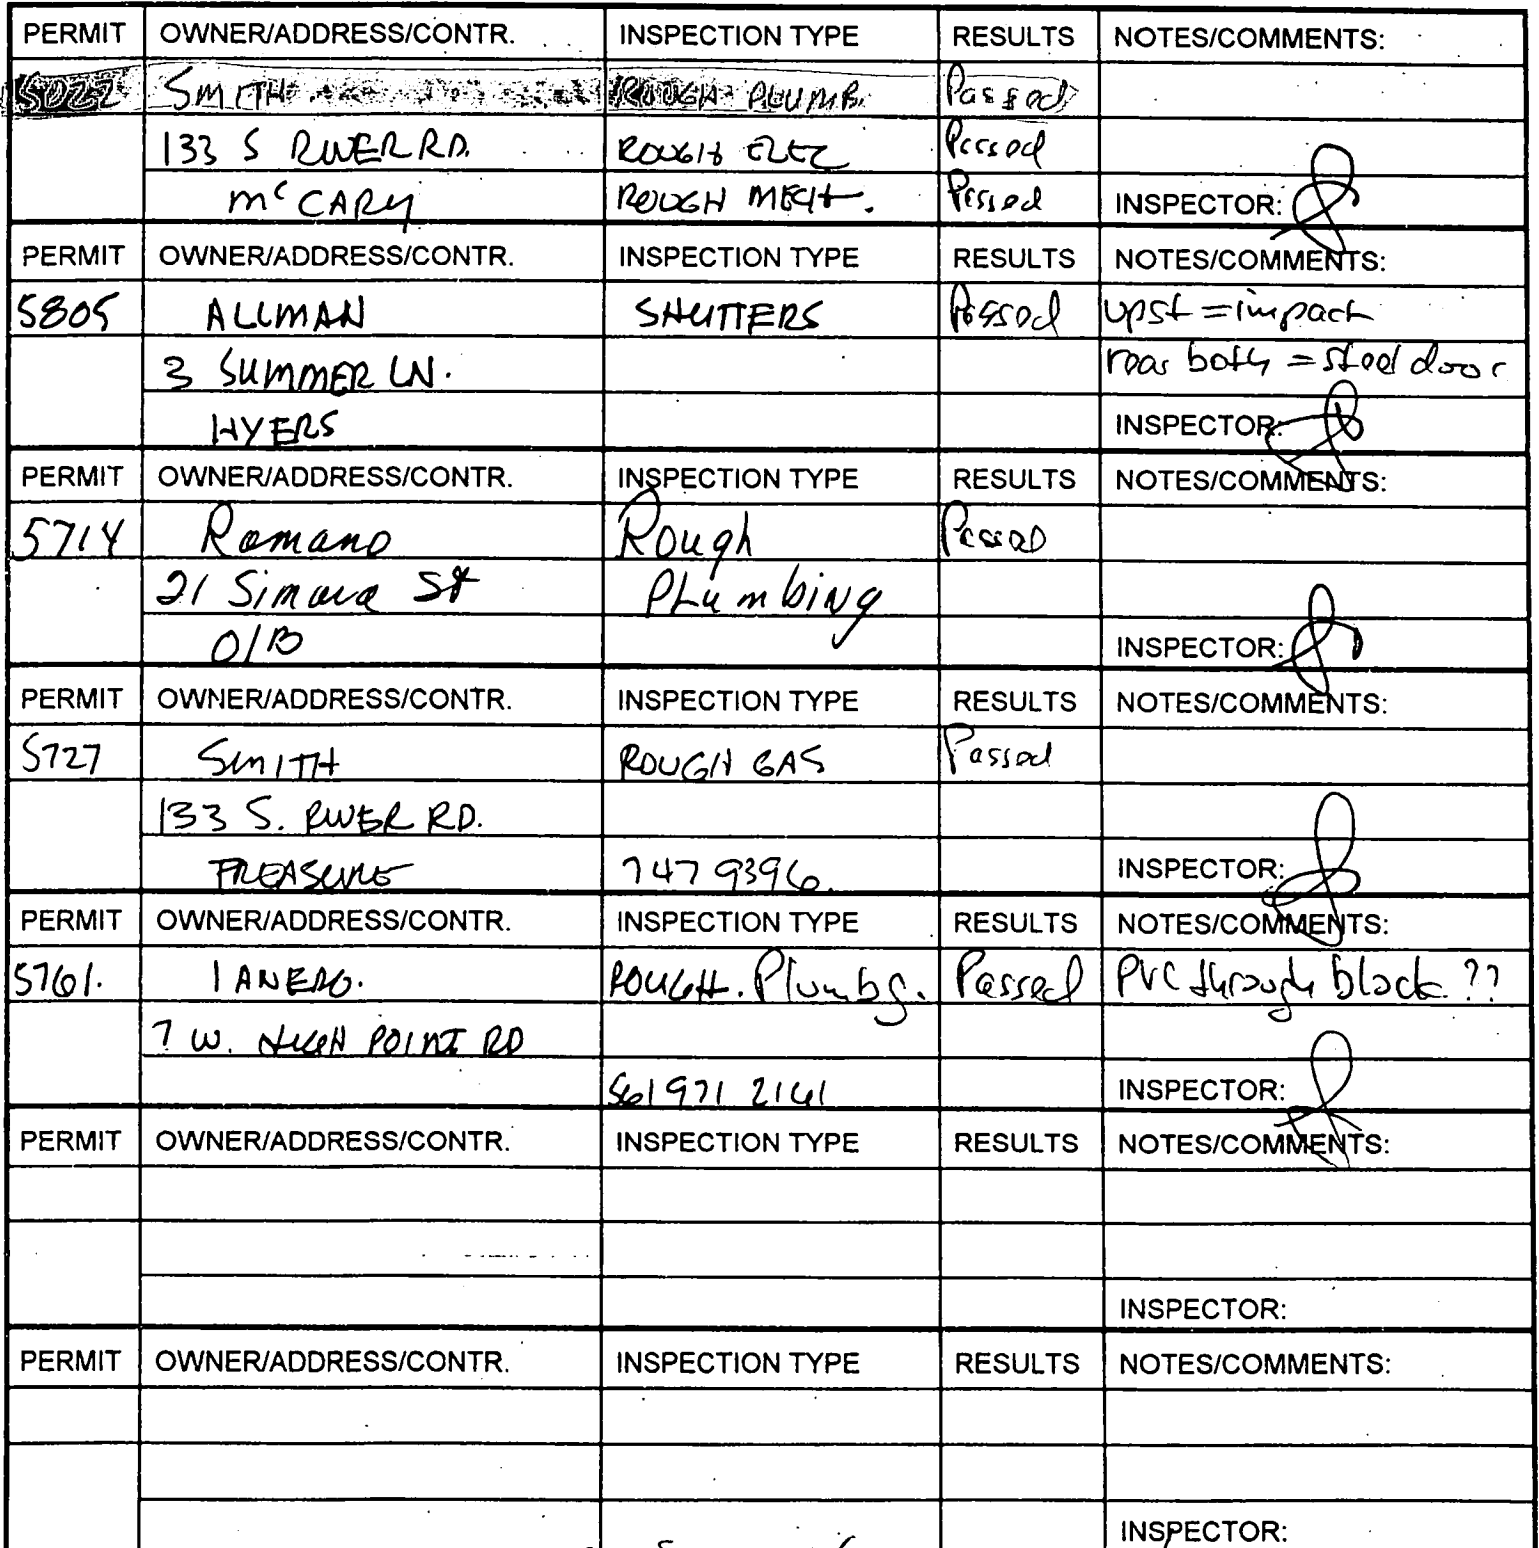 PERMIT OWNER/ADDRESS/CONTR. INSPECTION TYPE RESULTS NOTES/COMMENTS:
5022 SMITH ROUGH PLUMB. Passed
133 S RIVER RD. ROUGH ELEC Passed
McCARY ROUGH MECH. Passed INSPECTOR:
PERMIT OWNER/ADDRESS/CONTR. INSPECTION TYPE RESULTS NOTES/COMMENTS:
5805 ALLMAN SHUTTERS Passed upst = impact
3 SUMMER LN. rear both = steel door
HYERS INSPECTOR:
PERMIT OWNER/ADDRESS/CONTR. INSPECTION TYPE RESULTS NOTES/COMMENTS:
5714 Romano Rough Passed
21 Simara St PLumbing
O/B INSPECTOR:
PERMIT OWNER/ADDRESS/CONTR. INSPECTION TYPE RESULTS NOTES/COMMENTS:
5727 SMITH ROUGH GAS Passed
133 S. RIVER RD.
TREASURE 747 9396. INSPECTOR:
PERMIT OWNER/ADDRESS/CONTR. INSPECTION TYPE RESULTS NOTES/COMMENTS:
5761. ROUGH. Plumbg. Passed PVC through block ??
7 W. HIGH POINT RD
561 971 2161 INSPECTOR:
PERMIT OWNER/ADDRESS/CONTR. INSPECTION TYPE RESULTS NOTES/COMMENTS:
INSPECTOR:
PERMIT OWNER/ADDRESS/CONTR. INSPECTION TYPE RESULTS NOTES/COMMENTS:
INSPECTOR: